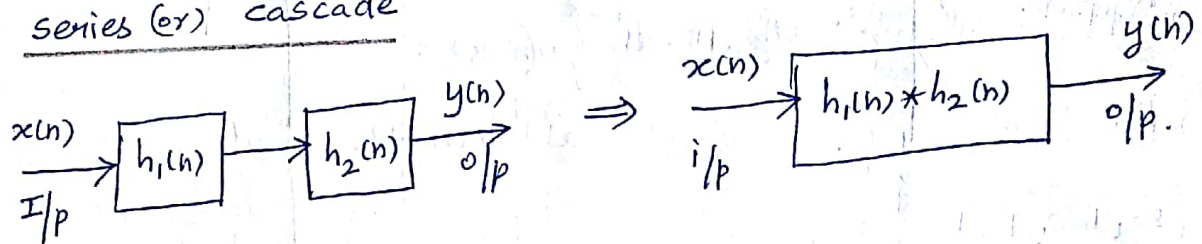 series (or) cascade
x(n)
I/p
h₁(n)
h₂(n)
y(n)
o/p
⇒
x(n)
i/p
h₁(n) * h₂(n)
y(n)
o/p.